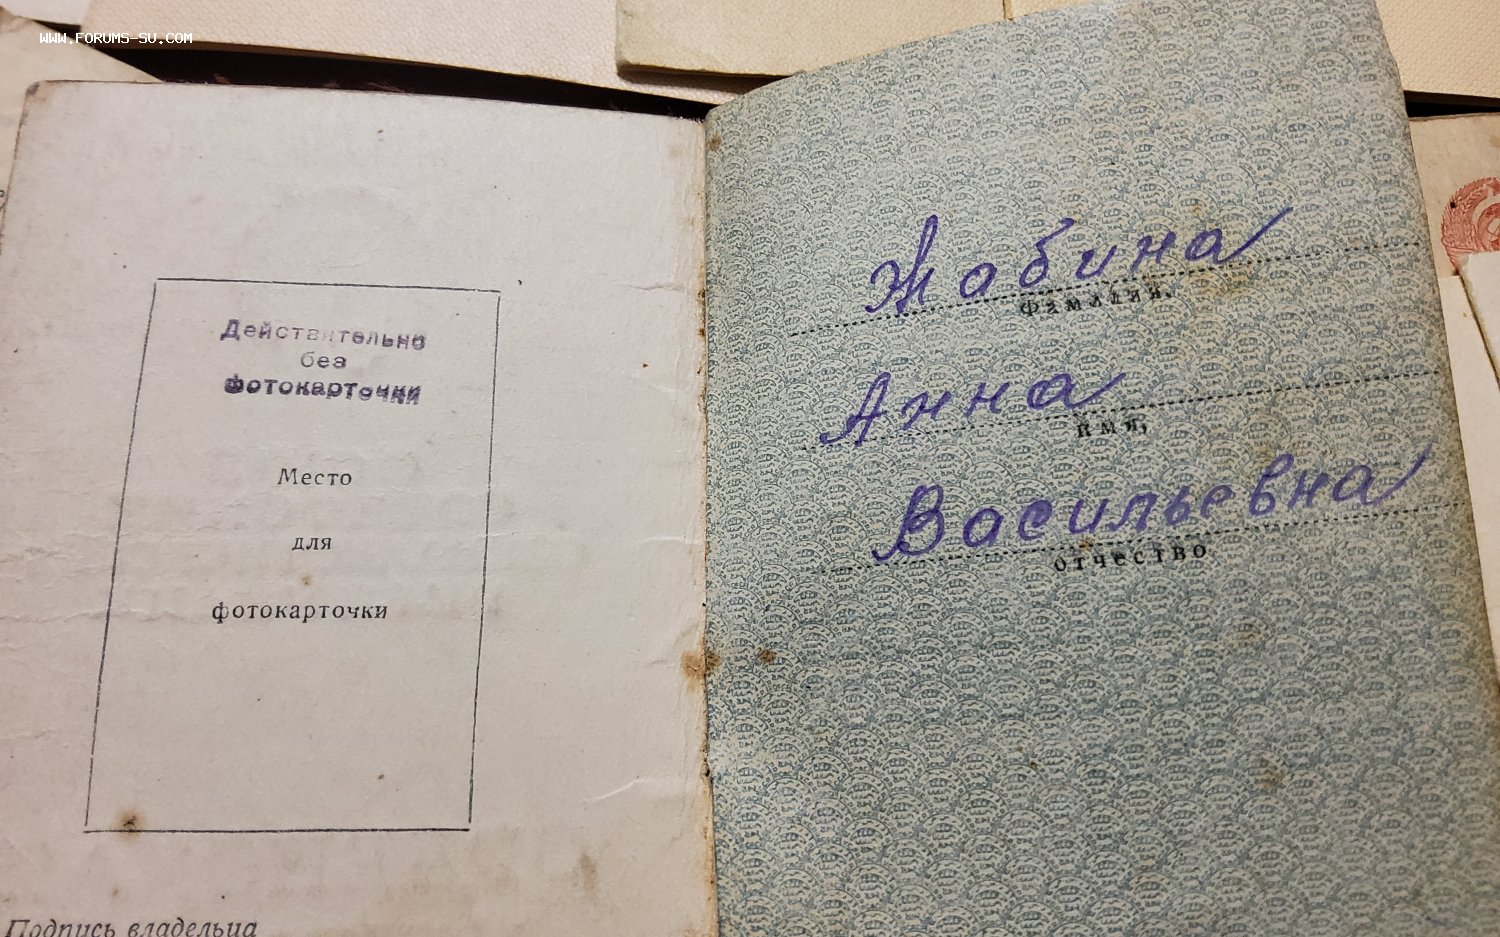 WWW.FORUMS-SU.COM
Действительно
без
фотокарточки
Место
для
фотокарточки
Подпись владельца
Жабина
фамилия,
Анна
имя,
Васильевна
отчество